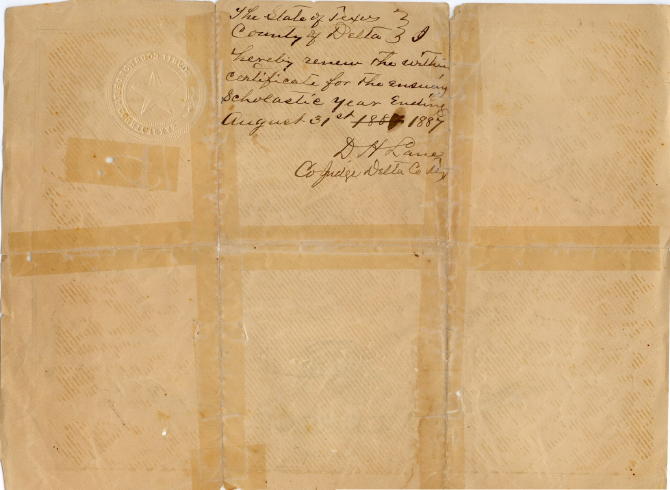 The State of Texas }
County of Delta } I
hereby renew the within
certificate for the ensuing
Scholastic year Ending
August 31st 1887
D H Lane
Co Judge Delta Co Tex